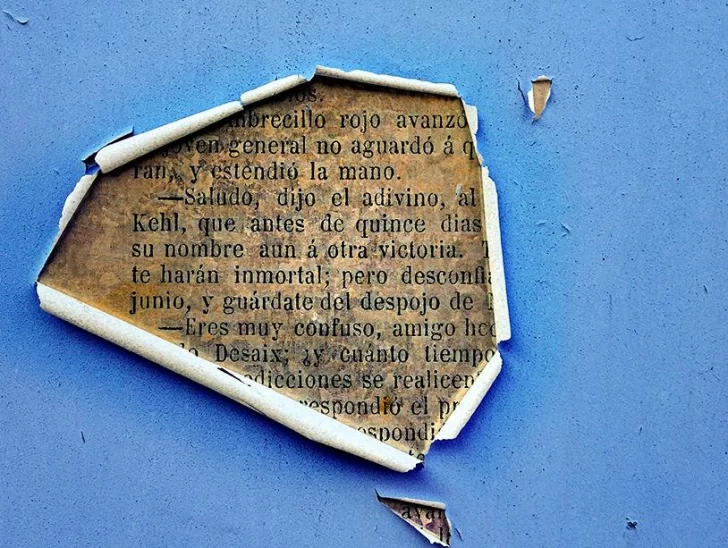 os.
mbrecillo rojo avanzó
joven general no aguardó á q
ran, y estendió la mano.
—Saludo, dijo el adivino, al
Kehl, que antes de quince dias
su nombre aun á otra victoria. T
te harán inmortal; pero desconfia
junio, y guárdate del despojo de l
—Eres muy confuso, amigo hec
Desaix; ¿y cuánto tiempo
edicciones se realicen
respondió el pr
espondi
te
avan